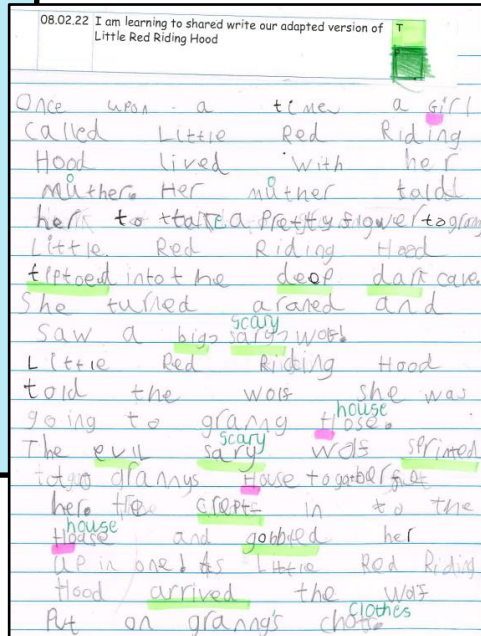 08.02.22 I am learning to shared write our adapted version of
Little Red Riding Hood
T
Once upon a time a girl
called Little Red Riding
Hood lived with her
muther. Her muther told
her to take a pretty flower to grany
Little Red Riding Hood
tiptoed into the deep dark cave.
She turned araned and
scary
saw a big, sary, wolf.
Little Red Riding Hood
told the wolf she was
house
going to granny Hose.
scary
The evil sary wolf sprinted
to grannys House to
her. crept in to the
house
House and gobbled her
up in one! As Little Red Riding
Hood arrived the wolf
clothes
Put on granny's